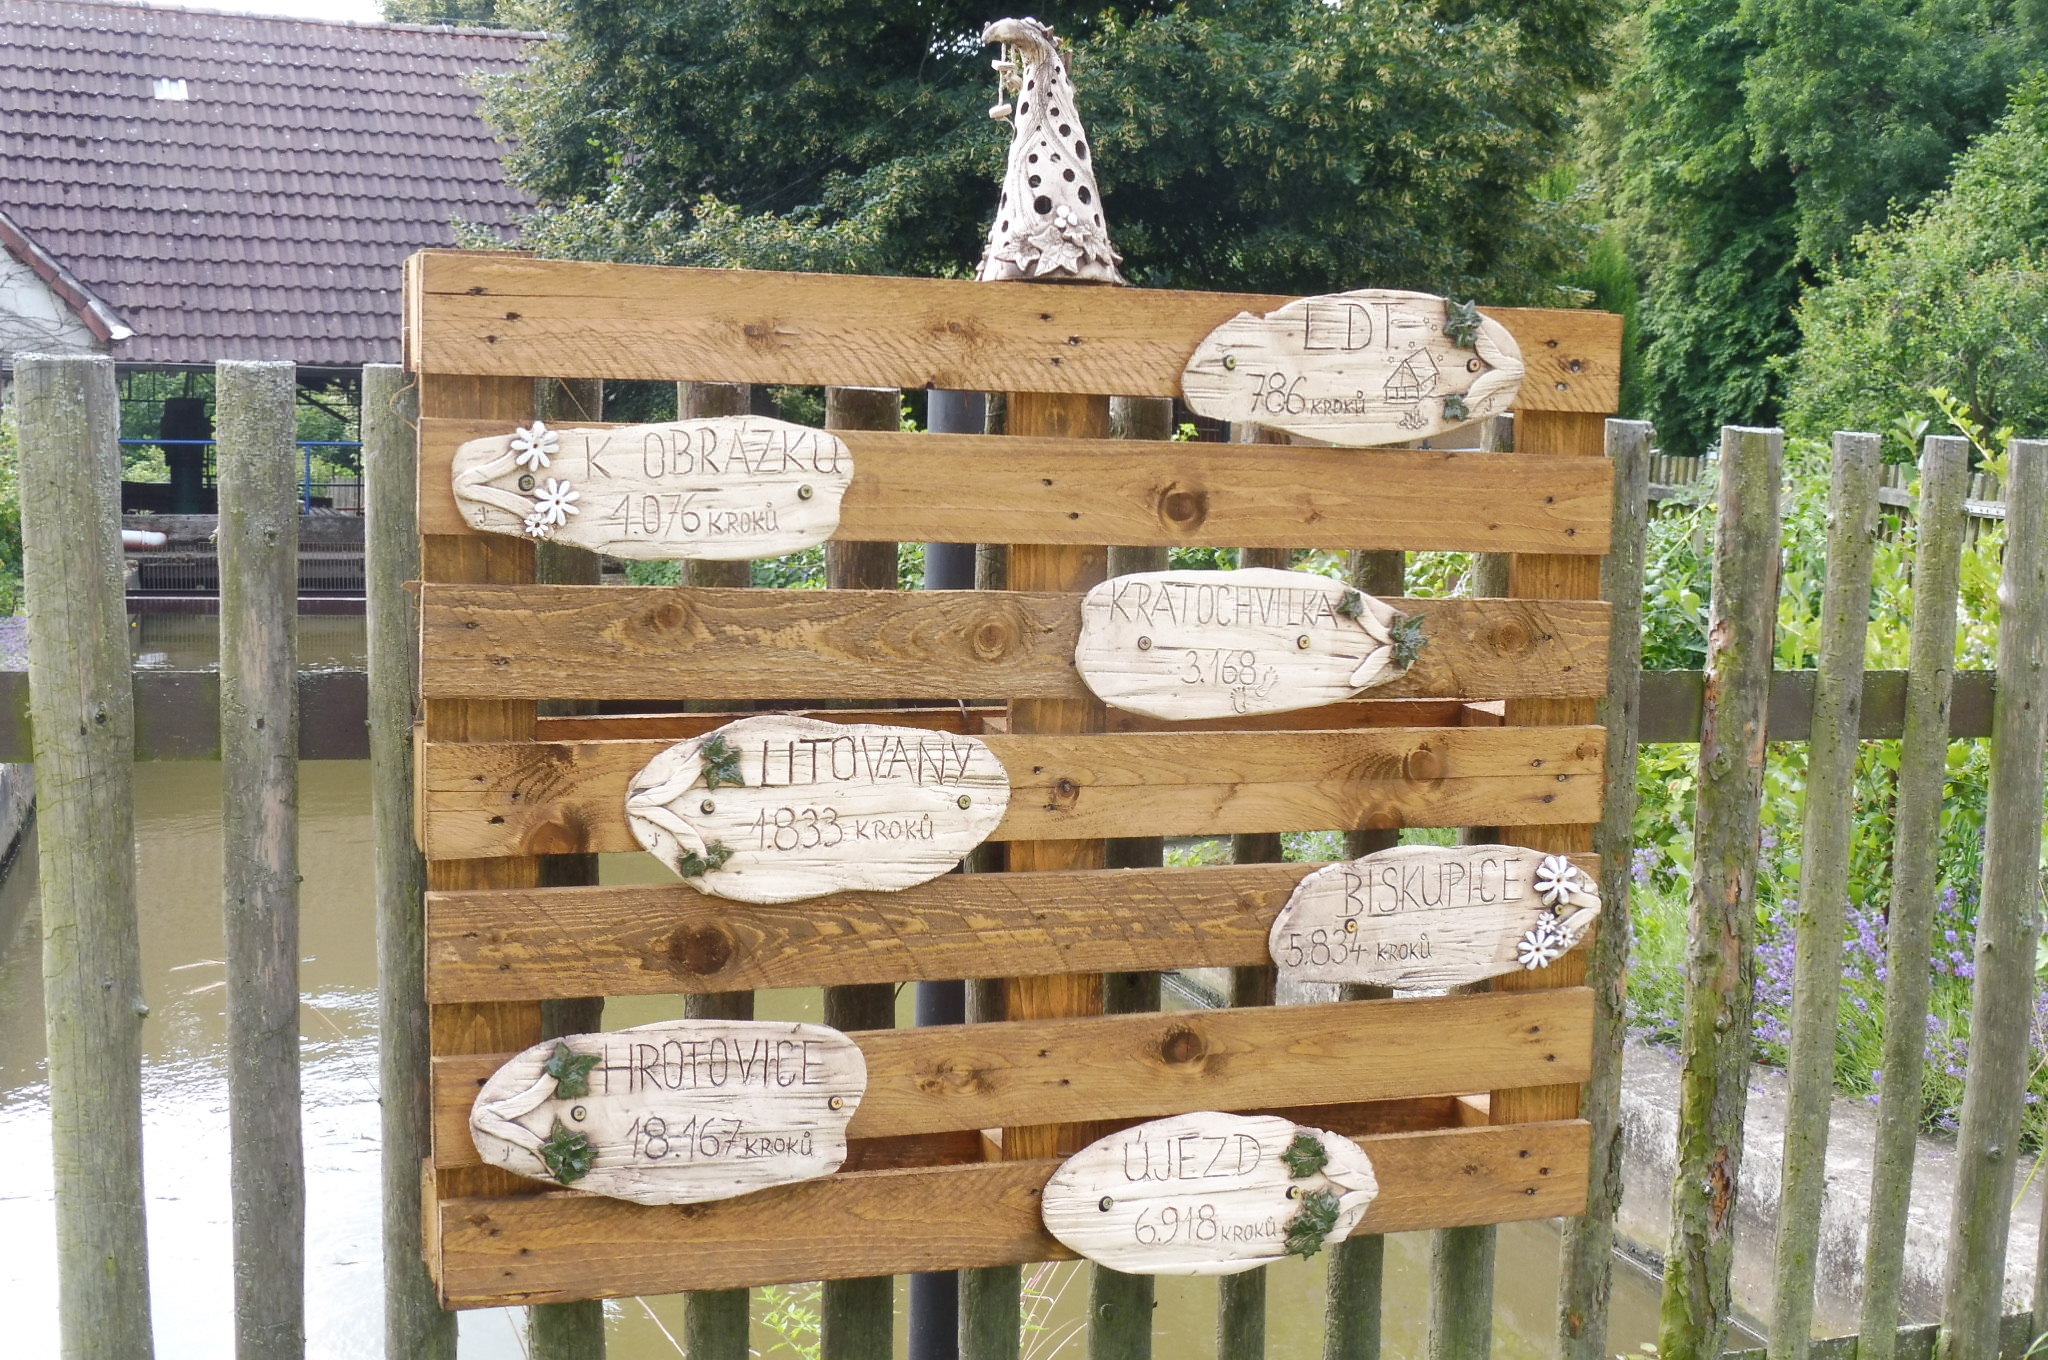 LDT
786 KROKŮ
K OBRÁZKU
1.076 KROKŮ
KRATOCHVILKA
3.168
LITOVANY
1.833 KROKŮ
BISKUPICE
5.834 KROKŮ
HROTOVICE
18.167 KROKŮ
ÚJEZD
6.918 KROKŮ